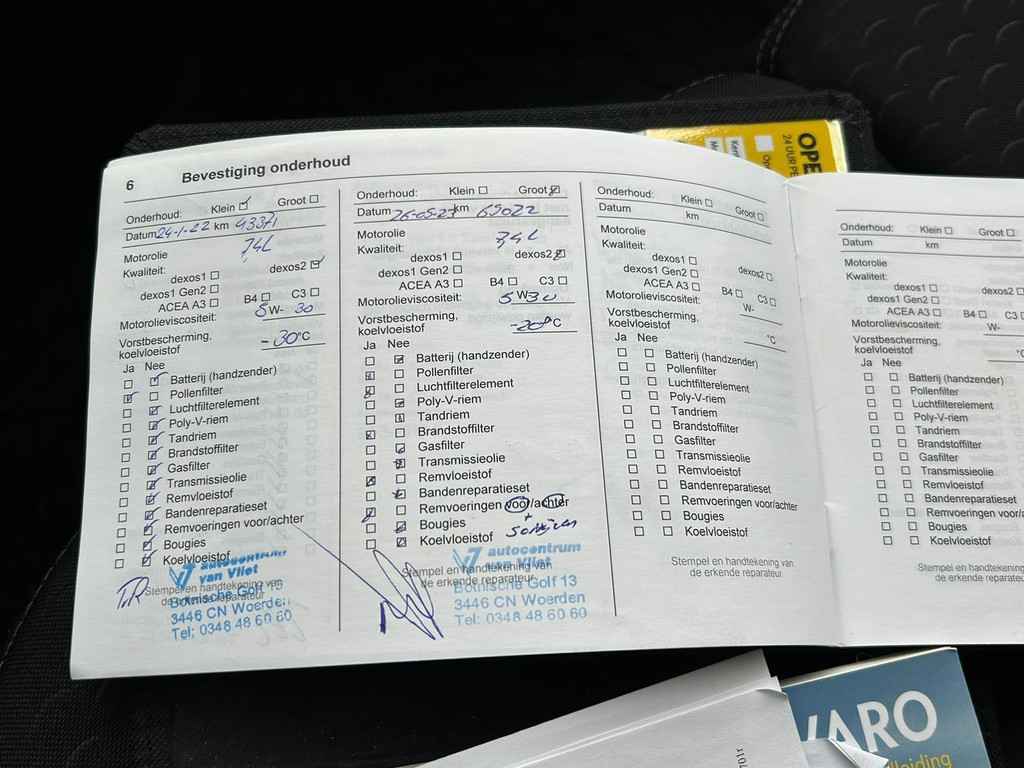 6 Bevestiging onderhoud
Onderhoud: Klein Groot
Datum 24-1-22 km 43371
Motorolie 7,4L
Kwaliteit:
dexos1 dexos2
dexos1 Gen2
ACEA A3 B4 C3
Motorolieviscositeit: 5 W- 30
Vorstbescherming, koelvloeistof -30°C
Ja Nee
Batterij (handzender)
Pollenfilter
Luchtfilterelement
Poly-V-riem
Tandriem
Brandstoffilter
Gasfilter
Transmissieolie
Remvloeistof
Bandenreparatieset
Remvoeringen voor/achter
Bougies
Koelvloeistof
Stempel en handtekening van
de erkende reparateur
autocentrum
van Vliet
Botnische Golf 13
3446 CN Woerden
Tel: 0348 48 60 60
Onderhoud: Klein Groot
Datum 26-05-23 km 65022
Motorolie 7,4L
Kwaliteit:
dexos1 dexos2
dexos1 Gen2
ACEA A3 B4 C3
Motorolieviscositeit: 5 W30
Vorstbescherming,
koelvloeistof -20°C
Ja Nee
Batterij (handzender)
Pollenfilter
Luchtfilterelement
Poly-V-riem
Tandriem
Brandstoffilter
Gasfilter
Transmissieolie
Remvloeistof
Bandenreparatieset
Remvoeringen voor/achter
+
Bougies
Koelvloeistof
Stempel en handtekening van
de erkende reparateur
autocentrum
van Vliet
Botnische Golf 13
3446 CN Woerden
Tel: 0348 48 60 60
Onderhoud: Klein Groot
Datum km
Motorolie
Kwaliteit:
dexos1 dexos2
dexos1 Gen2
ACEA A3 B4 C3
Motorolieviscositeit: W-
Vorstbescherming,
koelvloeistof °C
Ja Nee
Batterij (handzender)
Pollenfilter
Luchtfilterelement
Poly-V-riem
Tandriem
Brandstoffilter
Gasfilter
Transmissieolie
Remvloeistof
Bandenreparatieset
Remvoeringen voor/achter
Bougies
Koelvloeistof
Stempel en handtekening van
de erkende reparateur
Onderhoud: Klein Groot
Datum km
Motorolie
Kwaliteit:
dexos1 dexos2
dexos1 Gen2
ACEA A3 B4 C3
Motorolieviscositeit: W-
Vorstbescherming,
koelvloeistof
Ja Nee
Batterij (handzender)
Pollenfilter
Luchtfilterelement
Poly-V-riem
Tandriem
Brandstoffilter
Gasfilter
Transmissieolie
Remvloeistof
Bandenreparatieset
Remvoeringen voor/achter
Bougies
Koelvloeistof
Stempel en handtekening van
de erkende reparateur
OPE
24 UUR PE
VARO